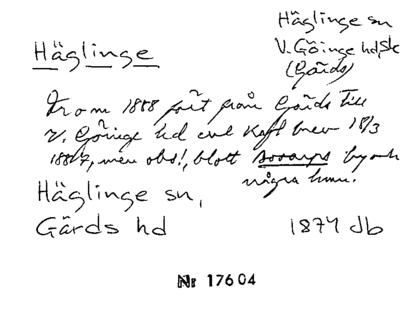 Häglinge sn
Häglinge
V. Göinge hd, Sk
(Gärds)
From 1888 fört från Gärds till
V. Göinge hd enl Kgl brev 18/3
1887, men obs!, blott by och
några hmn.
Häglinge sn,
Gärds hd
1874 db
Nr 17604